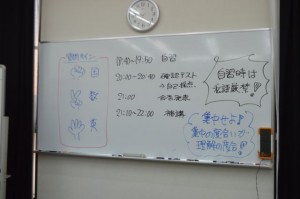 国
数
英
18:40~19:50 自習
20:00~20:40 確認テスト
自己採点
21:00 合否発表
21:10~22:00 補講
自習時は
私語厳禁!!
集中せよ!
集中の度合いが
理解の度合!!